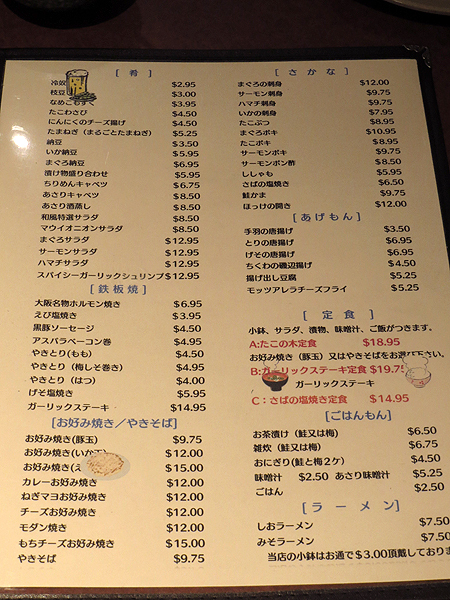 [ 肴 ]
冷奴 $2.95
枝豆 $3.00
なめこもずく $3.95
たこわさび $4.50
にんにくのチーズ揚げ $4.50
たまねぎ（まるごとたまねぎ） $5.25
納豆 $3.50
いか納豆 $5.95
まぐろ納豆 $6.95
漬け物盛り合わせ $5.95
ちりめんキャベツ $6.75
あさりバター $8.50
あさり酒蒸し $8.50
和風特選サラダ $8.50
マウイオニオンサラダ $8.50
まぐろサラダ $12.95
サーモンサラダ $12.95
ハマチサラダ $12.95
スパイシーガーリックシュリンプ $12.95
[ 鉄板焼 ]
大阪名物ホルモン焼き $6.95
えび塩焼き $3.95
黒豚ソーセージ $4.50
アスパラベーコン巻 $4.95
やきとり(もも) $4.50
やきとり（梅しそ巻き） $4.95
やきとり（はつ） $4.00
げそ塩焼き $5.95
ガーリックステーキ $14.95
[お好み焼き／やきそば]
お好み焼き(豚玉) $9.75
お好み焼き(いか $12.00
お好み焼き(え $15.00
カレーお好み焼き $12.00
ねぎマヨお好み焼き $12.00
チーズお好み焼き $12.00
モダン焼き $12.00
もちチーズお好み焼き $15.00
やきそば $9.75
[ さかな ]
まぐろの刺身 $12.00
サーモン刺身 $9.75
ハマチ刺身 $9.75
いかの刺身 $7.95
たこぶつ $8.95
まぐろポキ $10.95
たこポキ $8.95
サーモンポキ $9.75
サーモンポン酢 $8.50
ししゃも $5.95
さばの塩焼き $6.50
鮭かま $9.75
ほっけの開き $12.00
[あげもん]
手羽の唐揚げ $3.50
とりの唐揚げ $6.95
げその唐揚げ $6.95
ちくわの磯辺揚げ $4.50
揚げ出し豆腐 $5.25
モッツアレラチーズフライ $5.25
[ 定食 ]
小鉢、サラダ、漬物、味噌汁、ご飯がつきます。
A:たこの木定食 $18.95
お好み焼き（豚玉）又はやきそばをお選び下さい。
B:ガーリックステーキ定食 $19.75
ガーリックステーキ
C：さばの塩焼き定食 $14.95
[ごはんもん]
お茶漬け（鮭又は梅） $6.50
雑炊（鮭又は梅） $6.75
おにぎり(鮭と梅２ケ) $4.50
味噌汁 $2.50 あさり味噌汁 $5.25
ごはん $2.50
[ラーメン]
しおラーメン $7.50
みそラーメン $7.50
当店の小鉢はお通で＄3.00頂戴しておりま